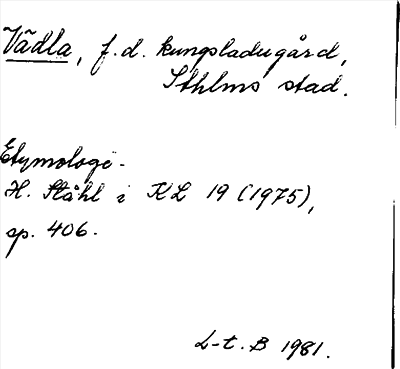 Vädla, f.d. kungsladugård,
Sthlms stad.
Etymologi.
H. Ståhl i KL 19 (1975),
sp. 406.
L-t. B 1981.